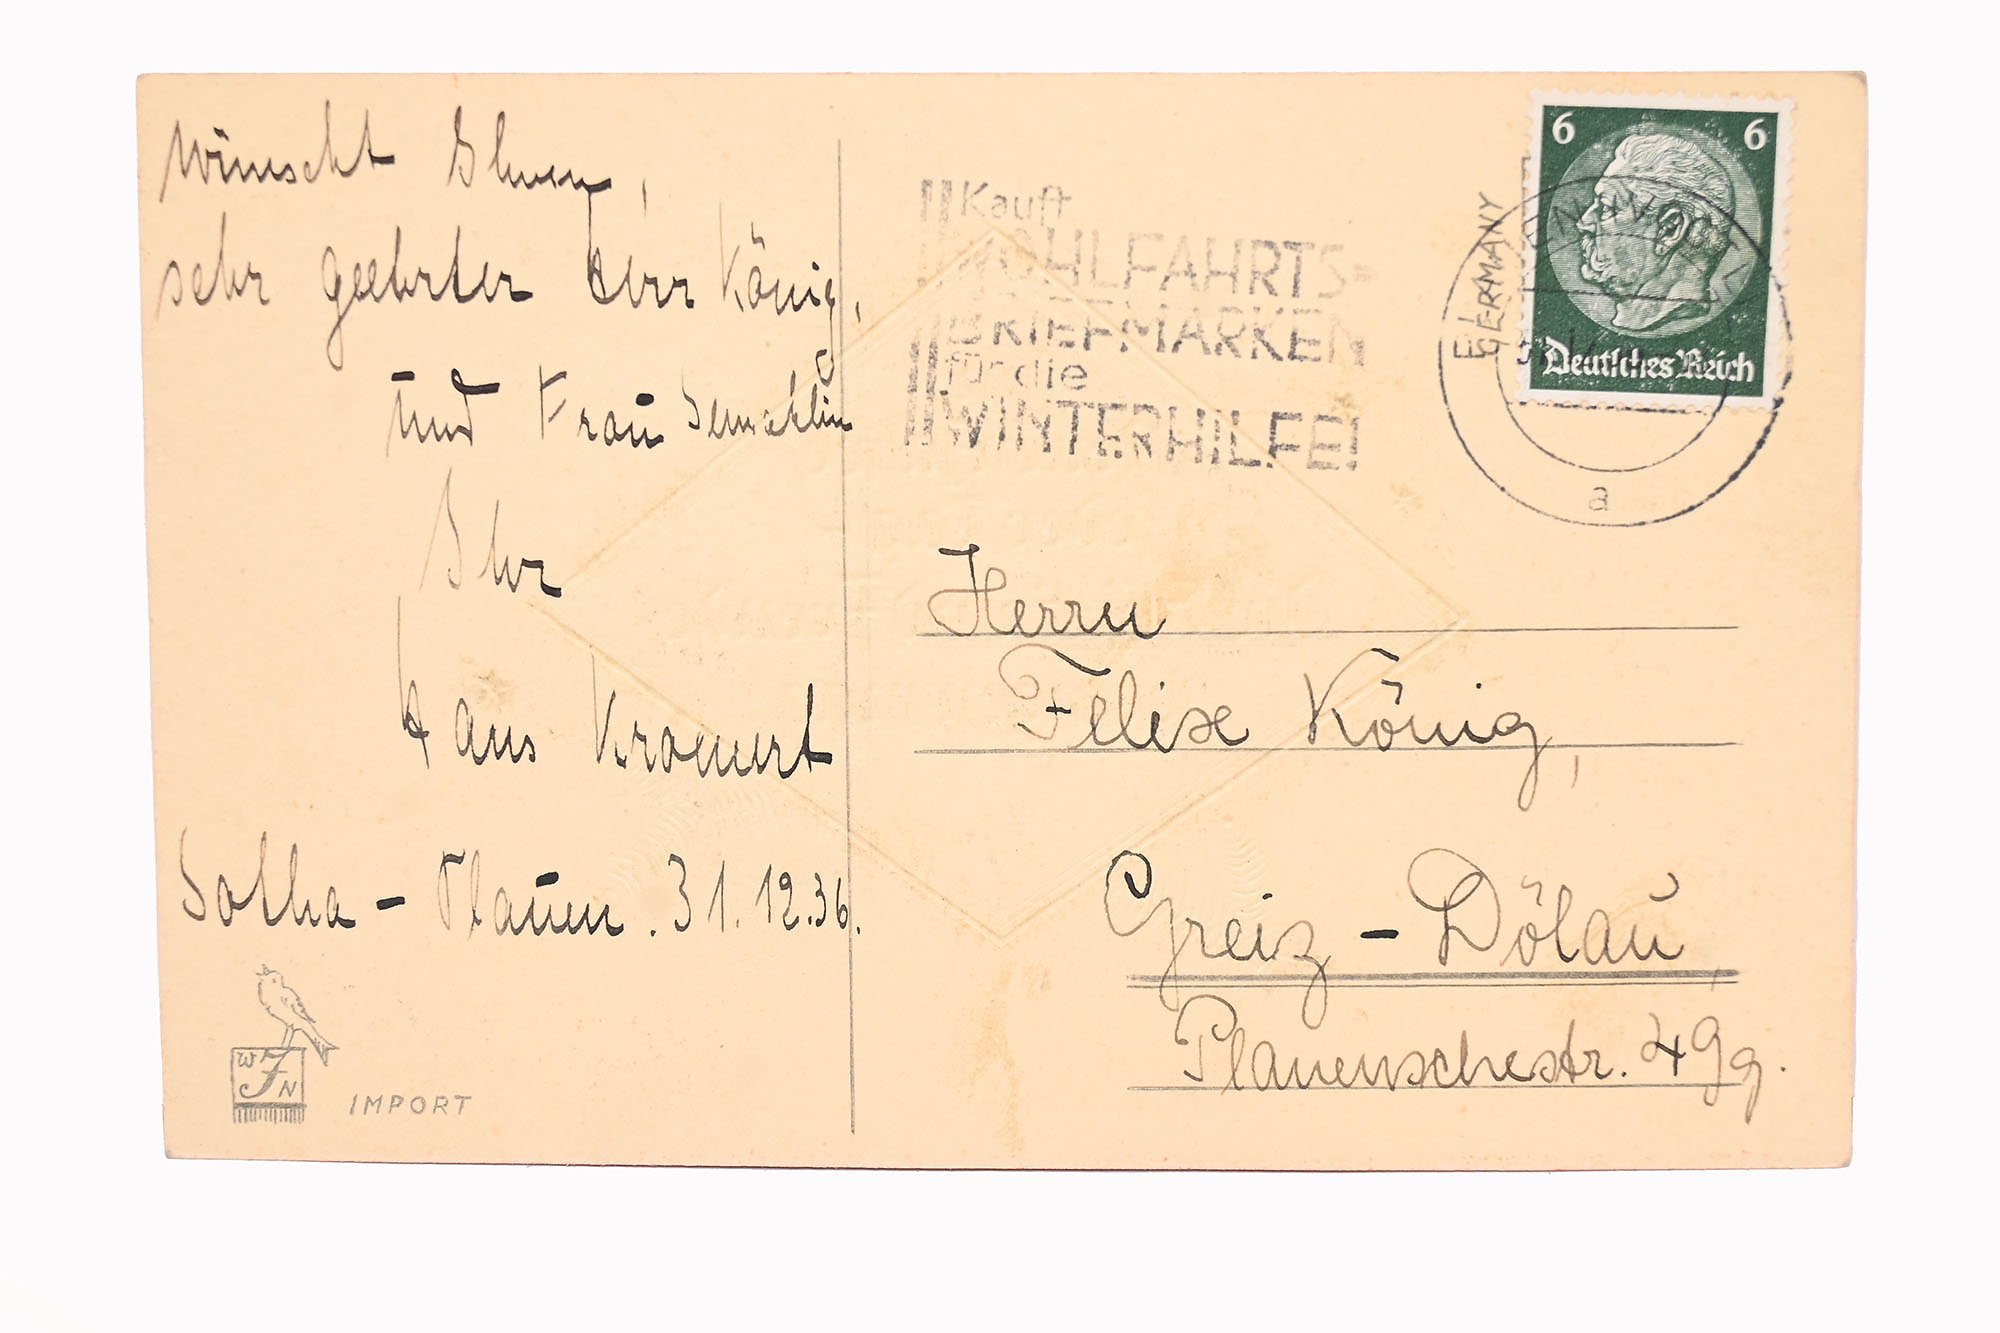 Wünscht Ihnen,
sehr geehrter Herr König,
und Frau Gemahlin
Ihr
Hans
Gotha - Plauen. 31.12.36.
W J N
IMPORT
Kauft
WOHLFAHRTS-
BRIEFMARKEN
für die
WINTERHILFE!
6 6
Deutsches Reich
GERMANY
a
Herrn
Felix König,
Greiz - Dölau,
Plauenschestr. 49g.